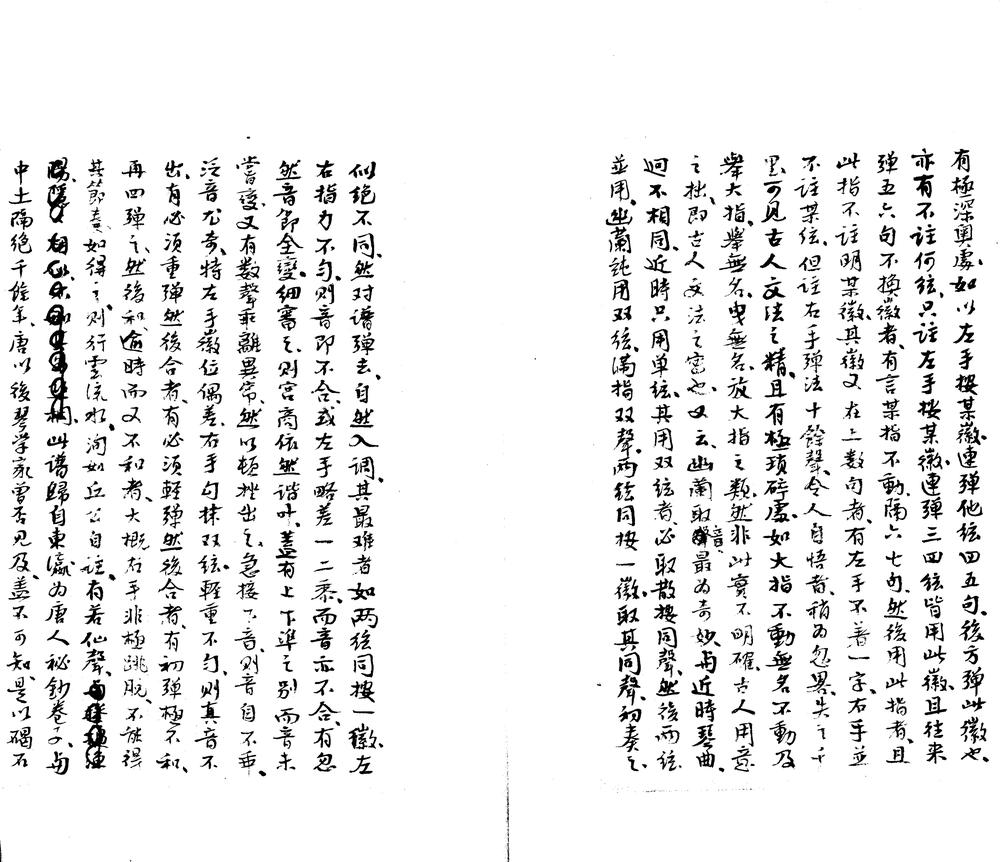 有極深輿處、如以左手按某徽、連弾他絃四五句、後方弹此徽也、
亦有不註何絃、只註左手按某徽、連弹三四絃皆用此徽、且往来
弹五六句不換徽者、有言某指不動、隔六七句、然後用此指者、且
此指不註明某徽、其徽又在上数句者、有左手不著一字、右手並
不註某絃、但註右手弹法十餘聲、令人自悟者、稍为忽畧、失之千
里、可見古人文法之精、且有極琐碎處、如大指不動無名不動及
舉大指、舉無名、曳無名、放大指之類、然非此實不明確、古人用意
之拙、即古人文法之密也、又云、幽蘭取音最为奇妙、与近時琴曲、
迥不相同、近時只用单絃、其用双絃者、必取散按同聲、然後两絃
並用、幽蘭純用双絃、满指双聲、两絃同按一徽、取其同聲、初奏之
似绝不同、然对譜弹去、自然入調、其最难者、如两絃同按一徽、左
右指力不匀、则音即不合、或左手略差一二黍、而音亦不合、有忽
然音節全變、细審之、则宫商依然谐叶、蓋有上下準之别、而音未
嘗變、又有数聲乖離異常、然以顿挫出之、急接下音、则音自不乖、
泛音尤奇、特左手徽位偶差、右手勾抹双絃、輕重不匀、则真音不
出、有必须重弹然後合者、有必须輕弹然後合者、有初弹極不和、
再四弹之、然後和、逾時而又不和者、大概右手非極跳脱、不能得
其節奏、如得之、则行雲流水、洵如丘公自註、有若仙聲、
此譜歸自東瀛、为唐人秘鈔卷子、与
中土隔绝千餘年、唐以後琴学家曾否見及、蓋不可知、是以碣石